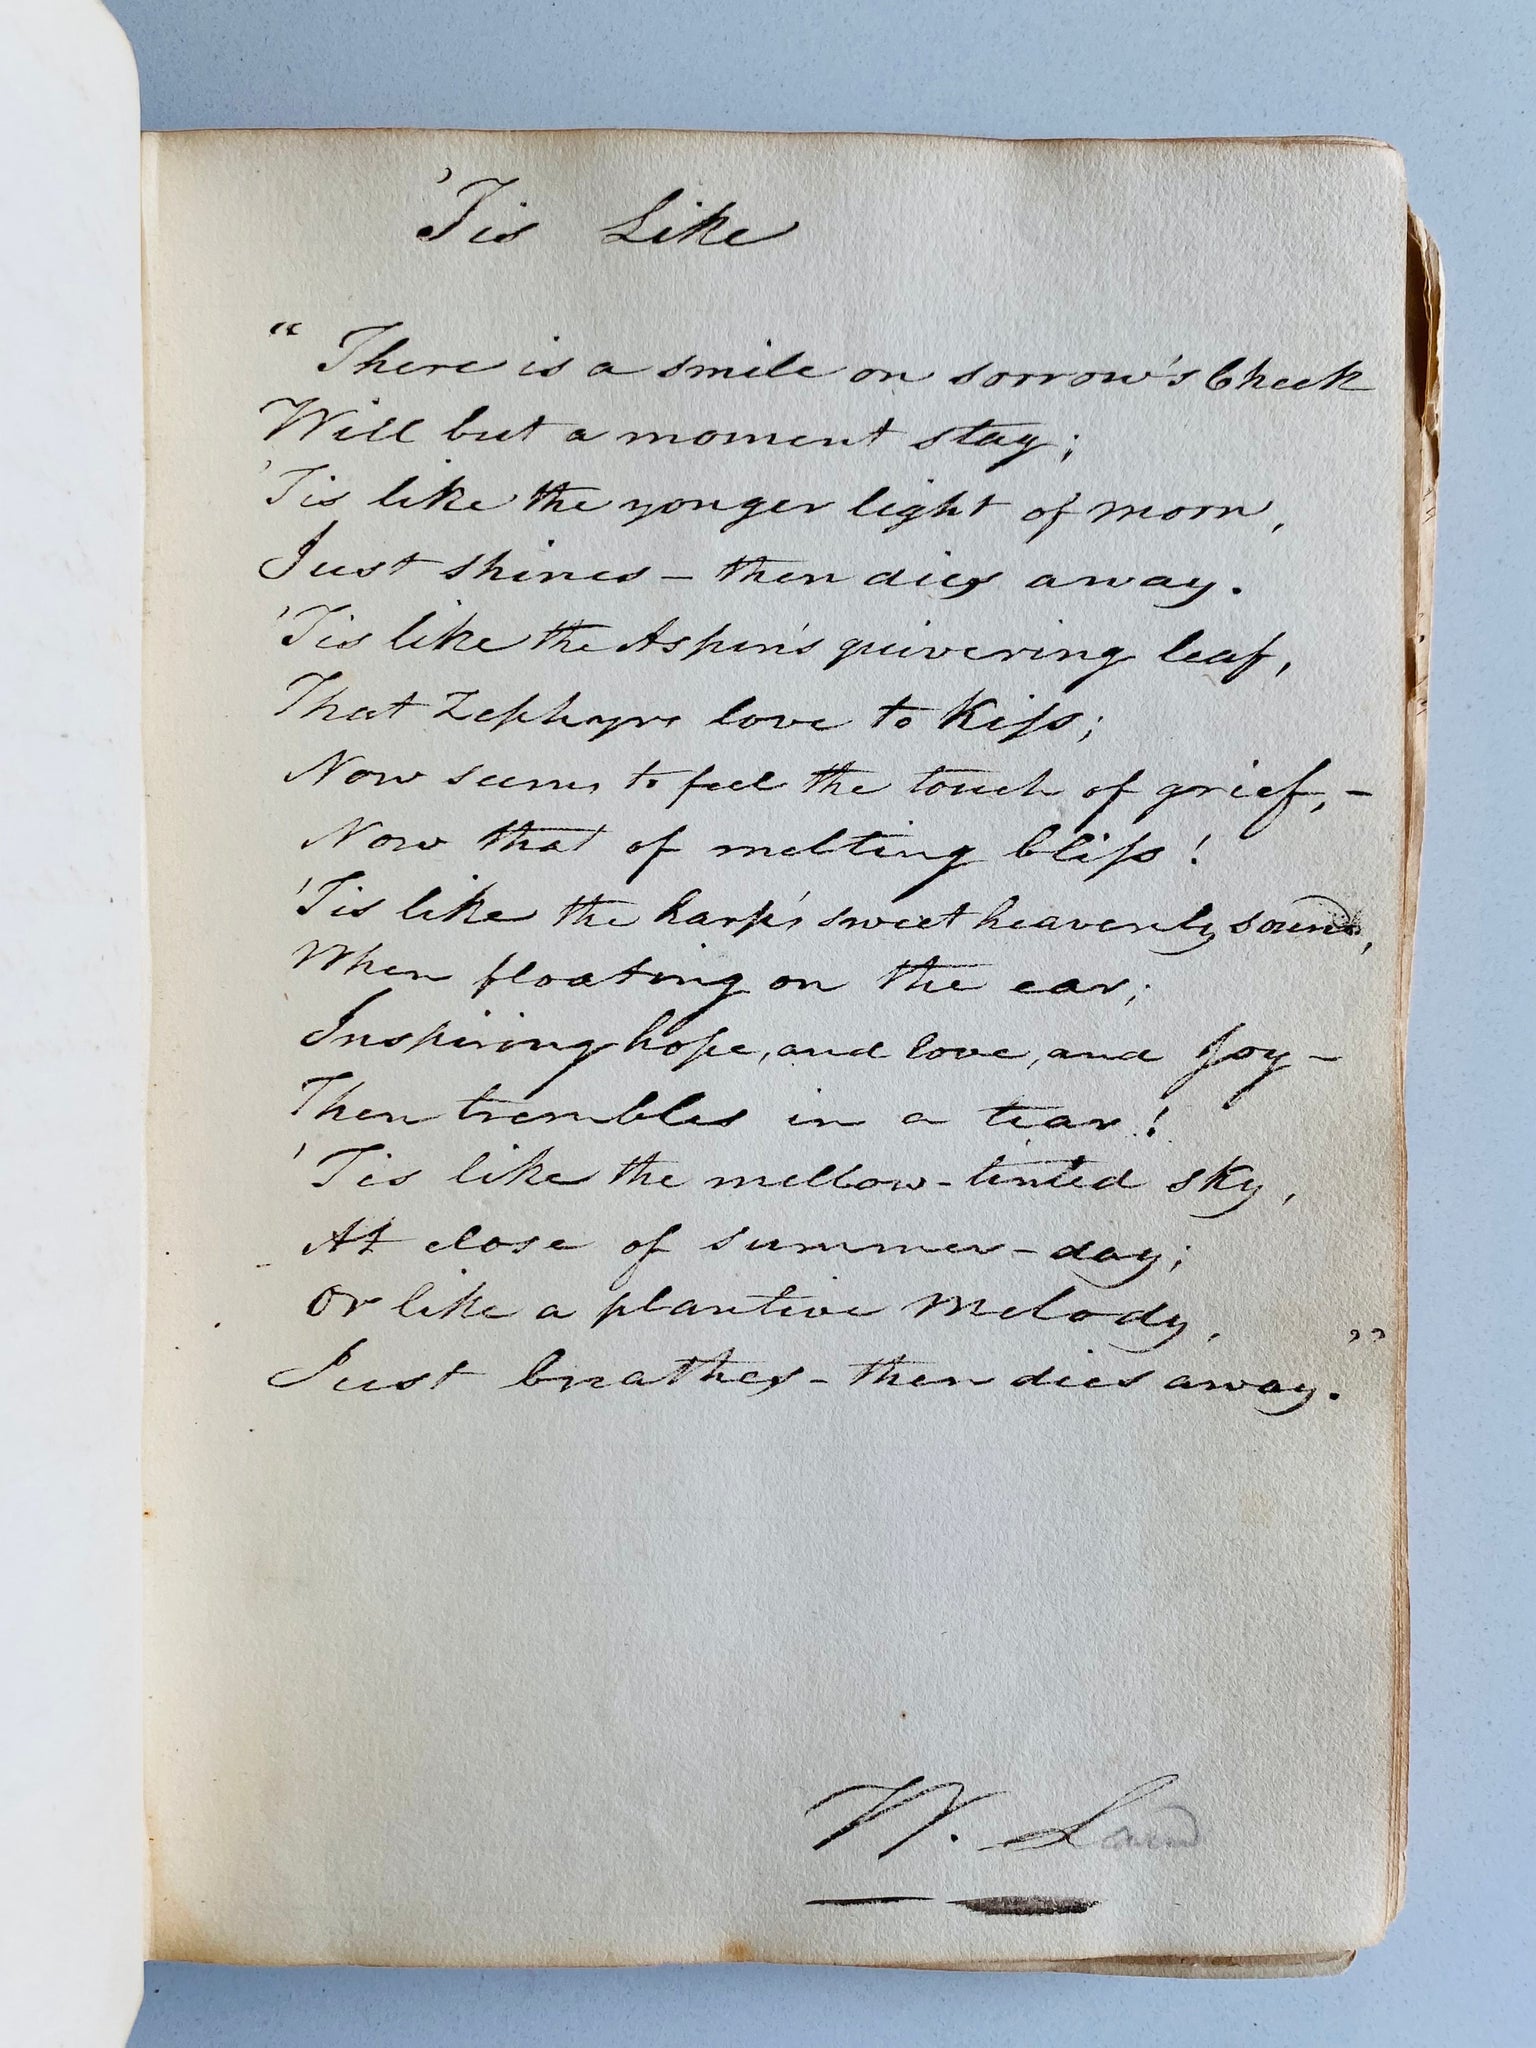 'Tis Like
“There is a smile on sorrow's Cheek
Will but a moment stay;
'Tis like the yonger light of morn,
Just shines – then dies away.
'Tis like the Aspin's quivering leaf,
That Zephyrs love to Kiſs;
Now seems to feel the touch of grief, –
Now that of melting bliſs!
'Tis like the harp's sweet heavenly sound,
When floating on the ear;
Inspiring hope, and love, and Joy –
Then trembles in a tear!
'Tis like the mellow-tinted sky,
At close of summer-day;
Or like a plantive Melody,
Just breathes – then dies away.”
W.